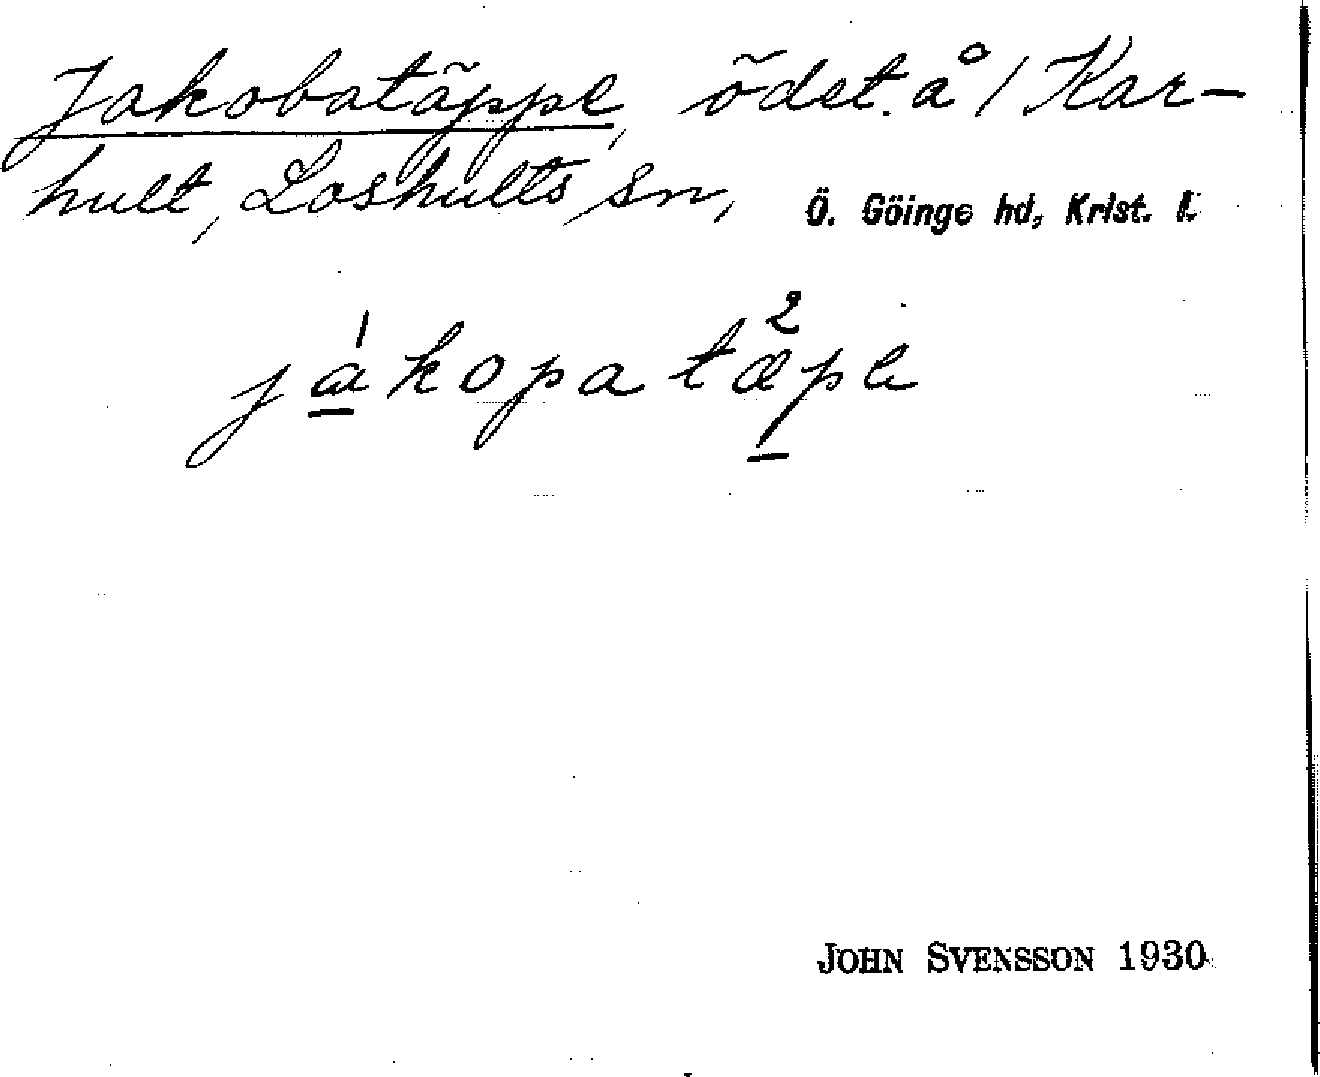 Jakobatäppe, ödet. å / Kar-
hult, Loshults sn, Ö. Göinge hd, Krist. l.
já̲kopa tæ²pe
JOHN SVENSSON 1930